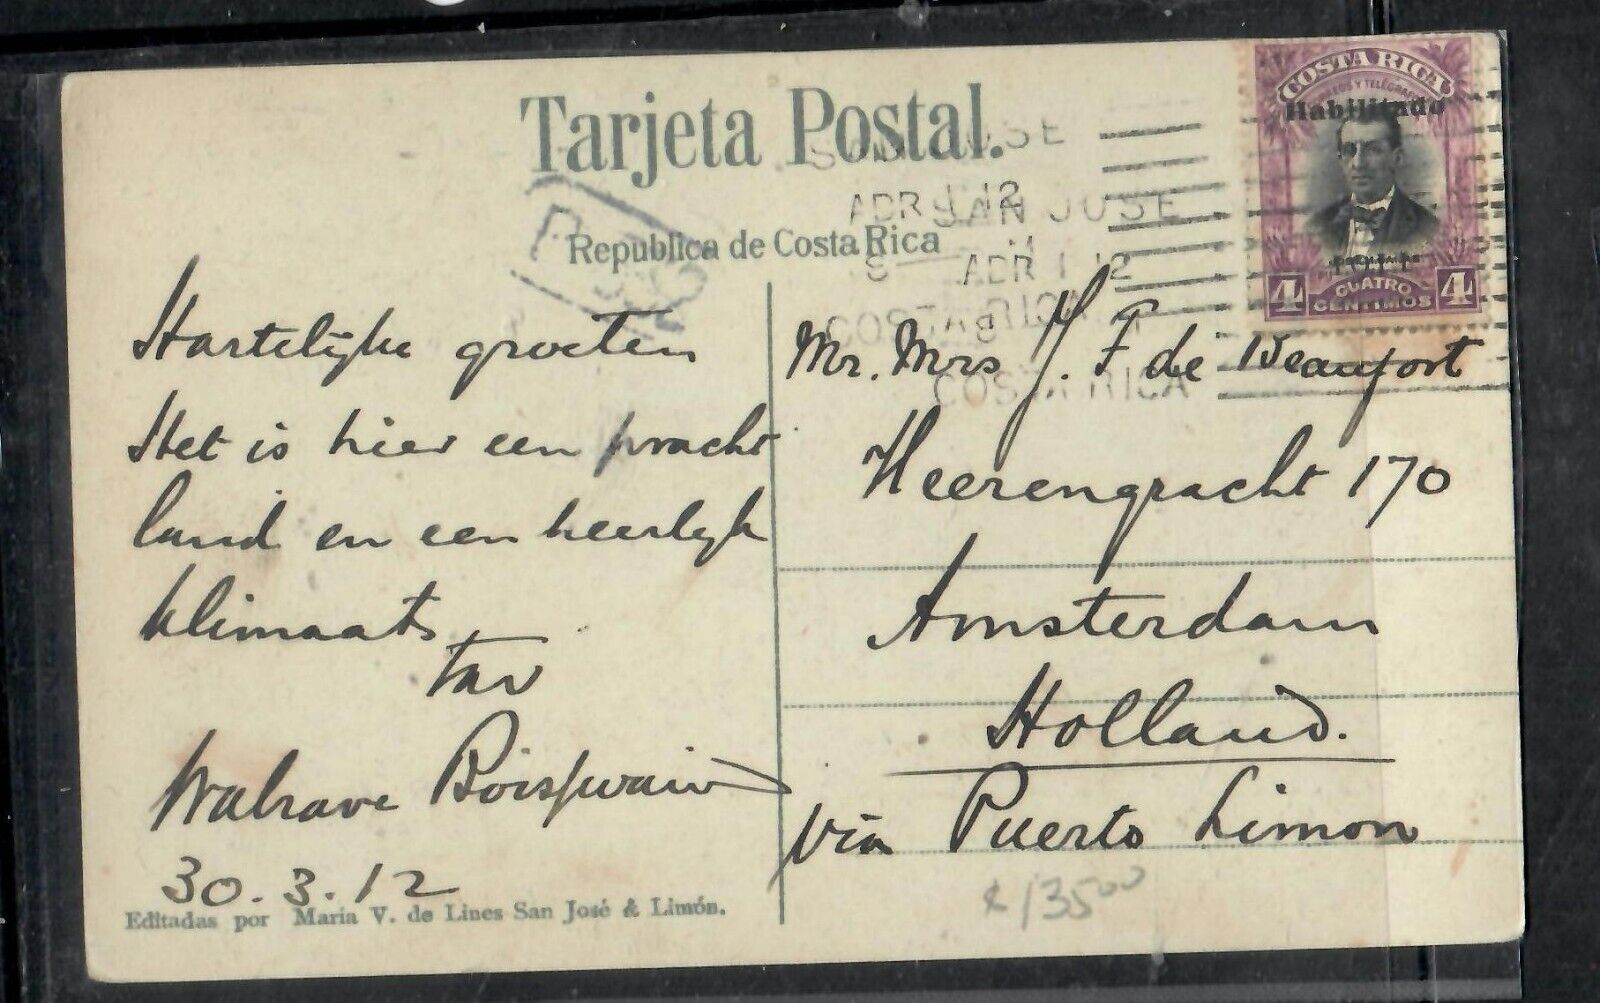 Tarjeta Postal.
Republica de Costa Rica
SAN JOSE
APR 1 12
COSTA RICA
SAN JOSE
APR 1 12
COSTA RICA
COSTA RICA
CORREOS Y TELEGRAFOS
Habilitado
1911
4 CUATRO CENTIMOS 4
Hartelijke groeten
Het is hier een pracht
land en een heerlijk
klimaat.
Walrave Boissevain
30.3.12
Mr. Mrs J. F de Beaufort
Heerengracht 170
Amsterdam
Holland.
via Puerto Limon
Editadas por María V. de Lines San José & Limón.
13500